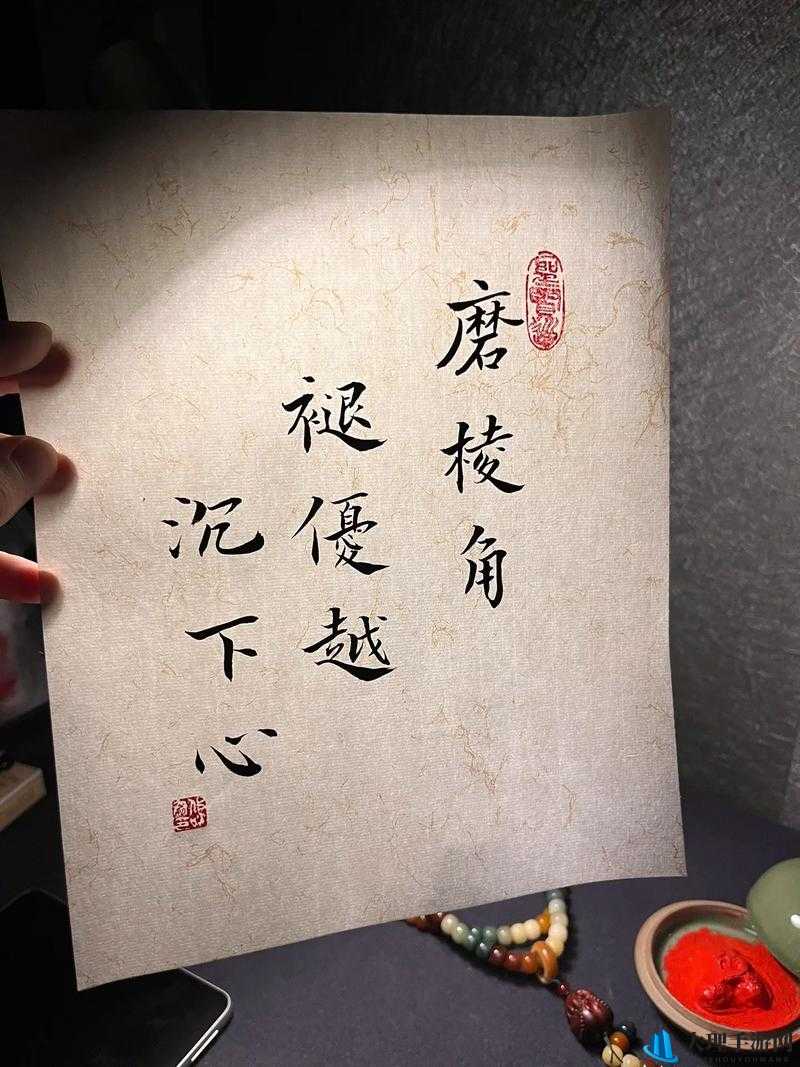 磨棱角
褪優越
沉下心
大理手游网